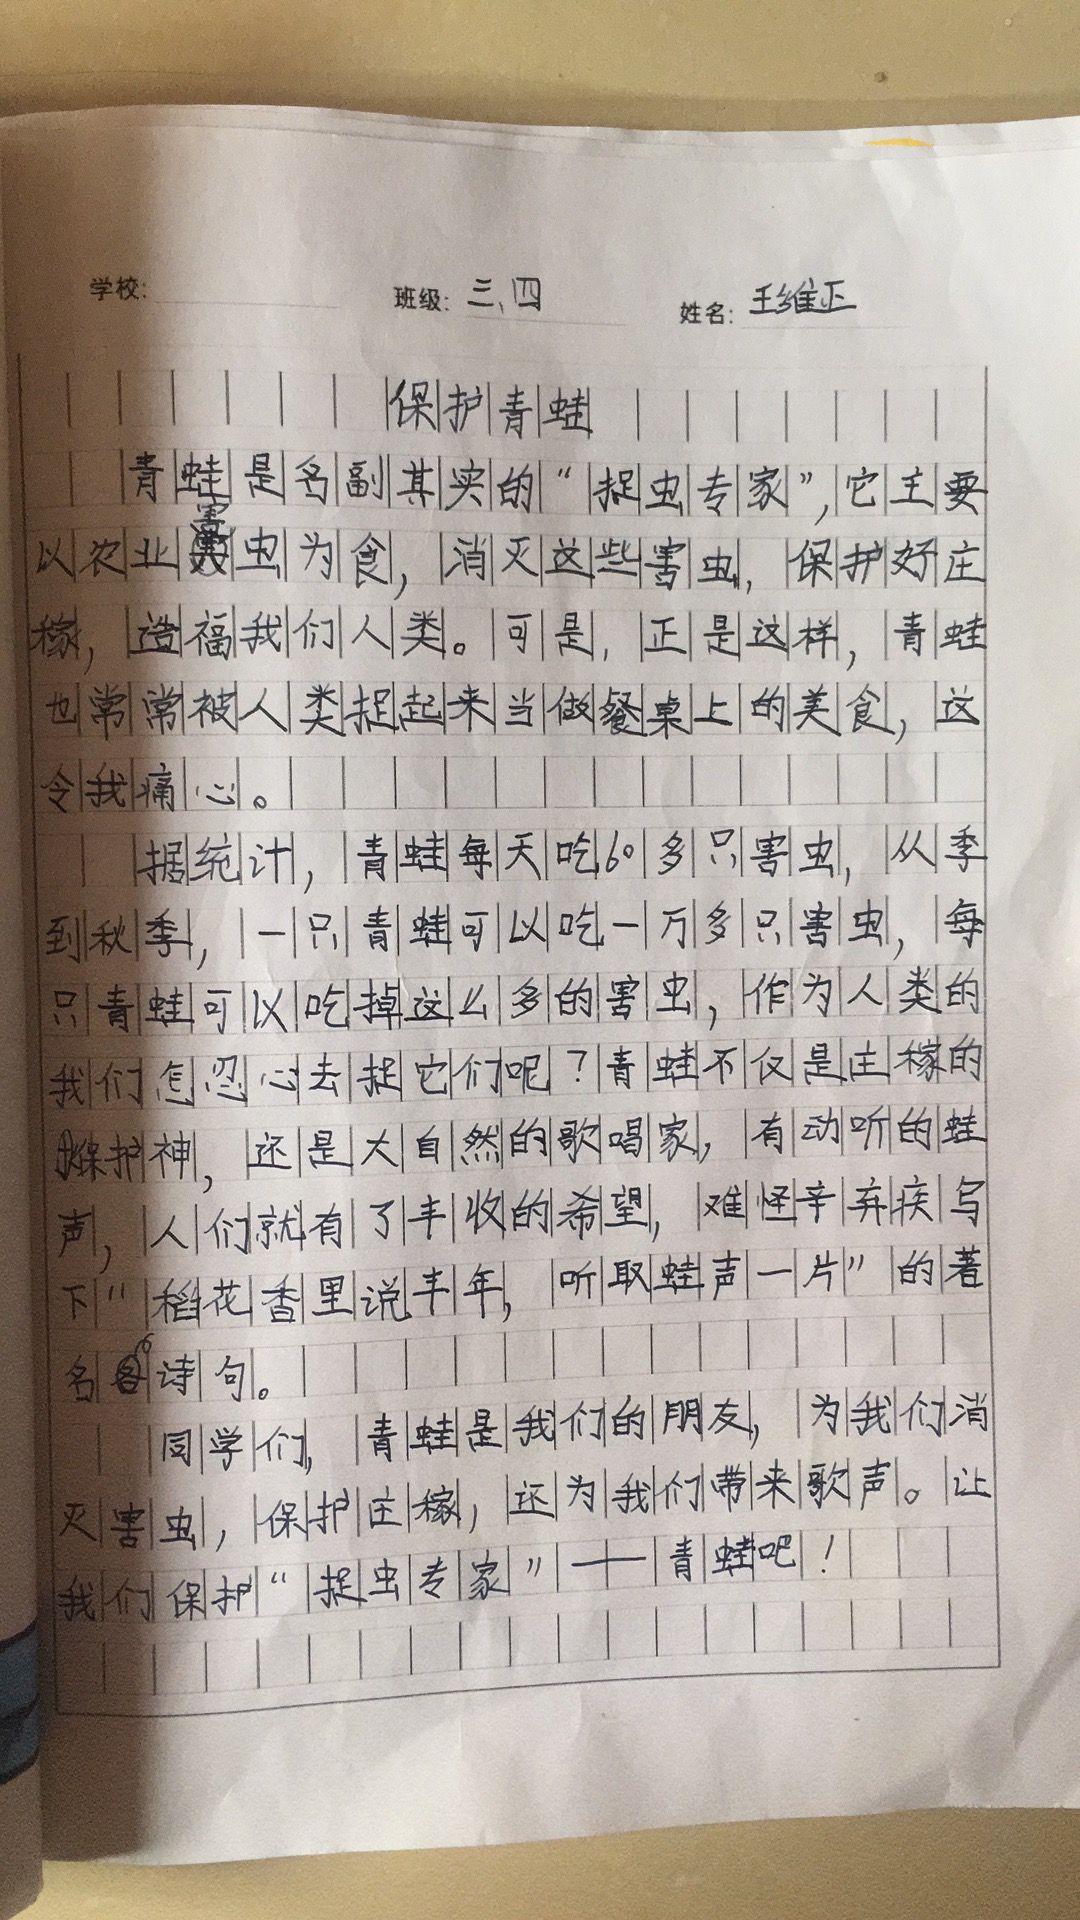 学校:
班级: 三、四
姓名: 王维正
保护青蛙
青蛙是名副其实的“捉虫专家”,它主要
以农业害虫为食,消灭这些害虫,保护好庄
稼,造福我们人类。可是,正是这样,青蛙
也常常被人类捉起来当做餐桌上的美食,这
令我痛心。
据统计,青蛙每天吃60多只害虫,从季
到秋季,一只青蛙可以吃一万多只害虫,每
只青蛙可以吃掉这么多的害虫,作为人类的
我们怎忍心去捉它们呢?青蛙不仅是庄稼的
保护神,还是大自然的歌唱家,有动听的蛙
声,人们就有了丰收的希望,难怪辛弃疾写
下“稻花香里说丰年,听取蛙声一片”的著
名诗句。
同学们,青蛙是我们的朋友,为我们消
灭害虫,保护庄稼,还为我们带来歌声。让
我们保护“捉虫专家”——青蛙吧!